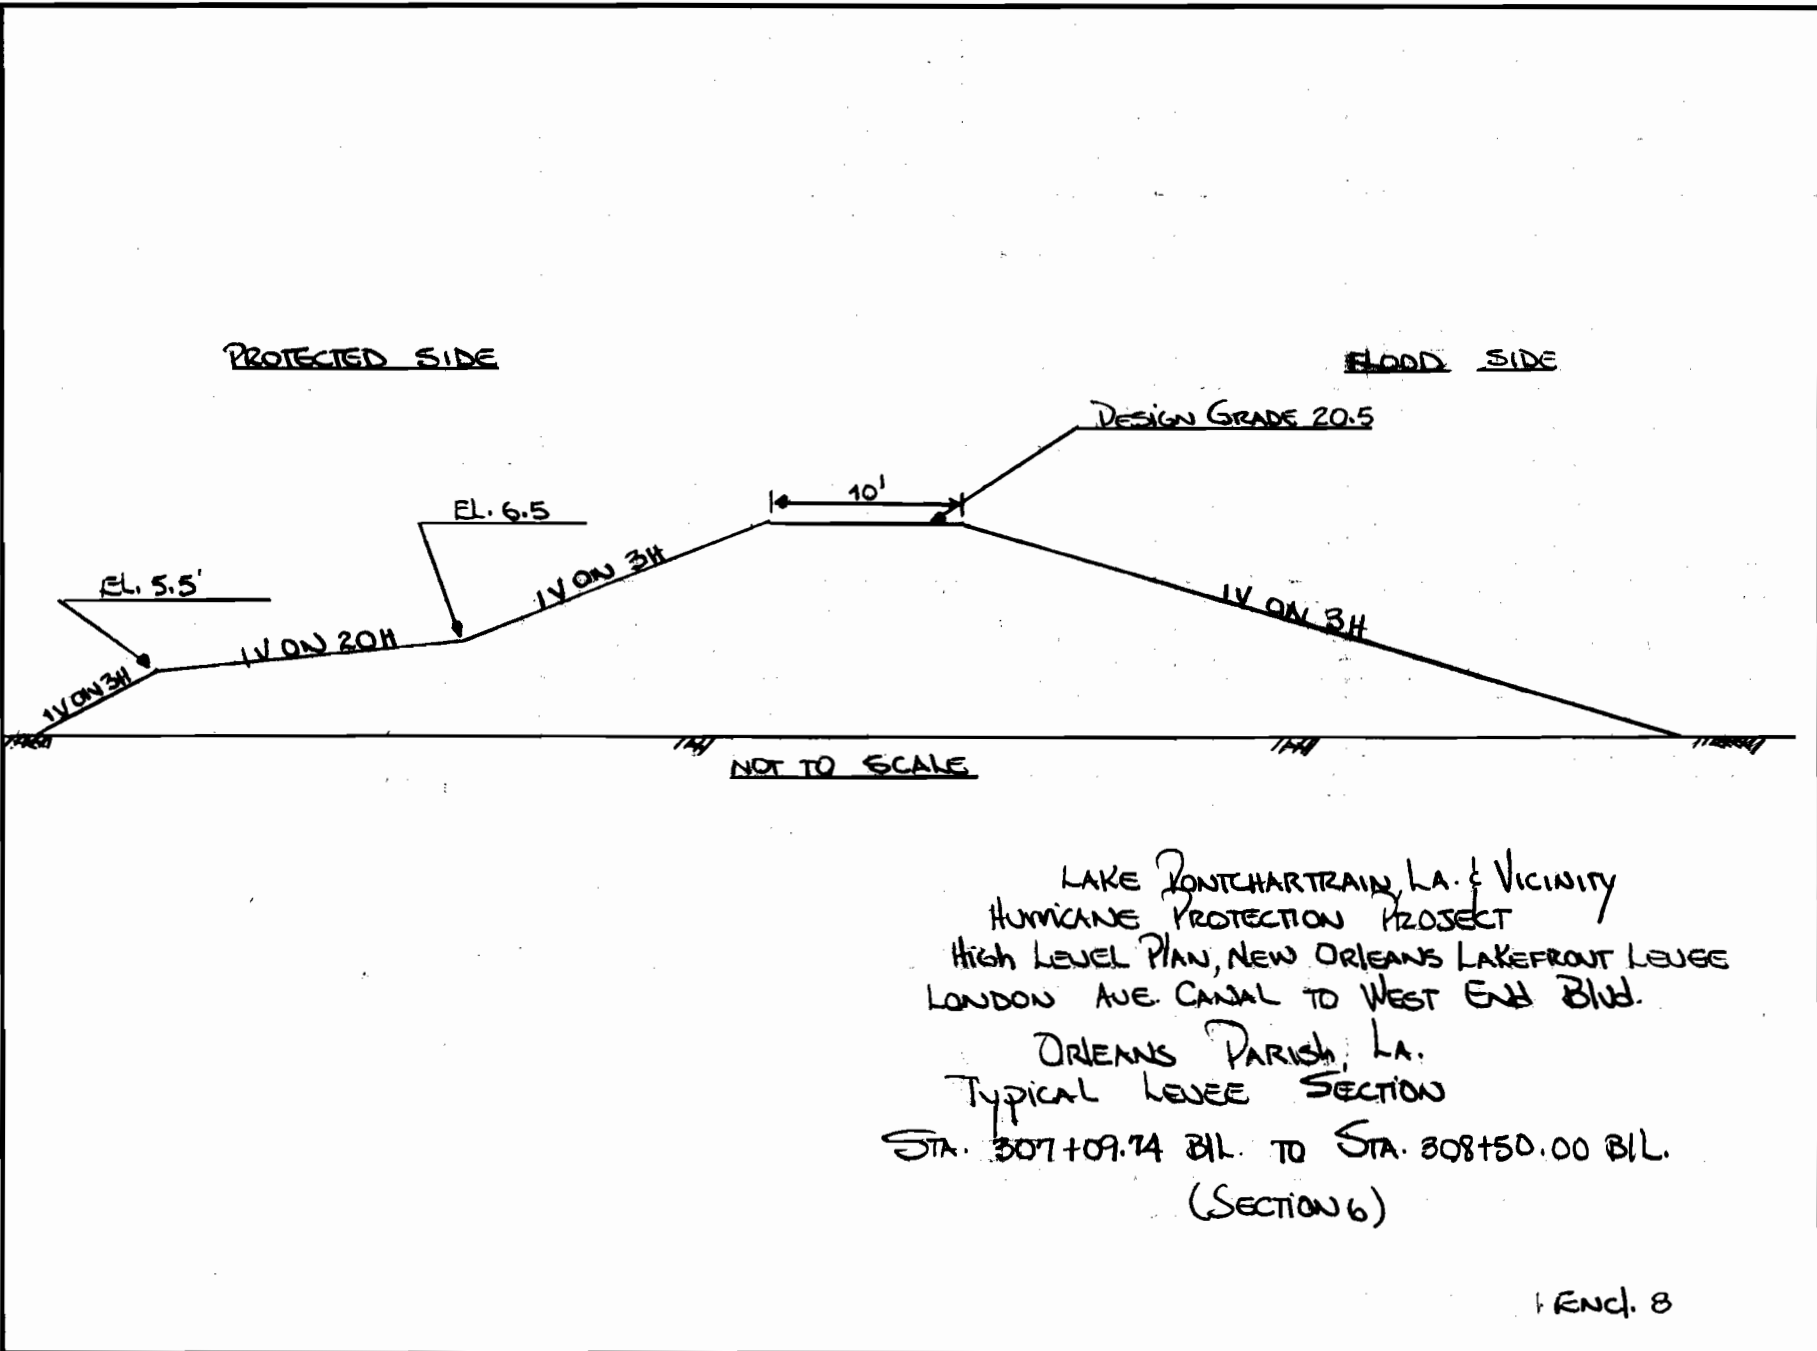 PROTECTED SIDE
FLOOD SIDE
DESIGN GRADE 20.5
10'
EL. 6.5
EL. 5.5'
1V ON 3H
1V ON 20H
1V ON 3H
1V ON 3H
NOT TO SCALE
LAKE PONTCHARTRAIN, LA. & VICINITY
HURRICANE PROTECTION PROJECT
HIGH LEVEL PLAN, NEW ORLEANS LAKEFRONT LEVEE
LONDON AVE. CANAL TO WEST END BLVD.
ORLEANS PARISH, LA.
TYPICAL LEVEE SECTION
STA. 307+09.74 B/L. TO STA. 308+50.00 B/L.
(SECTION 6)
ENCL. 8